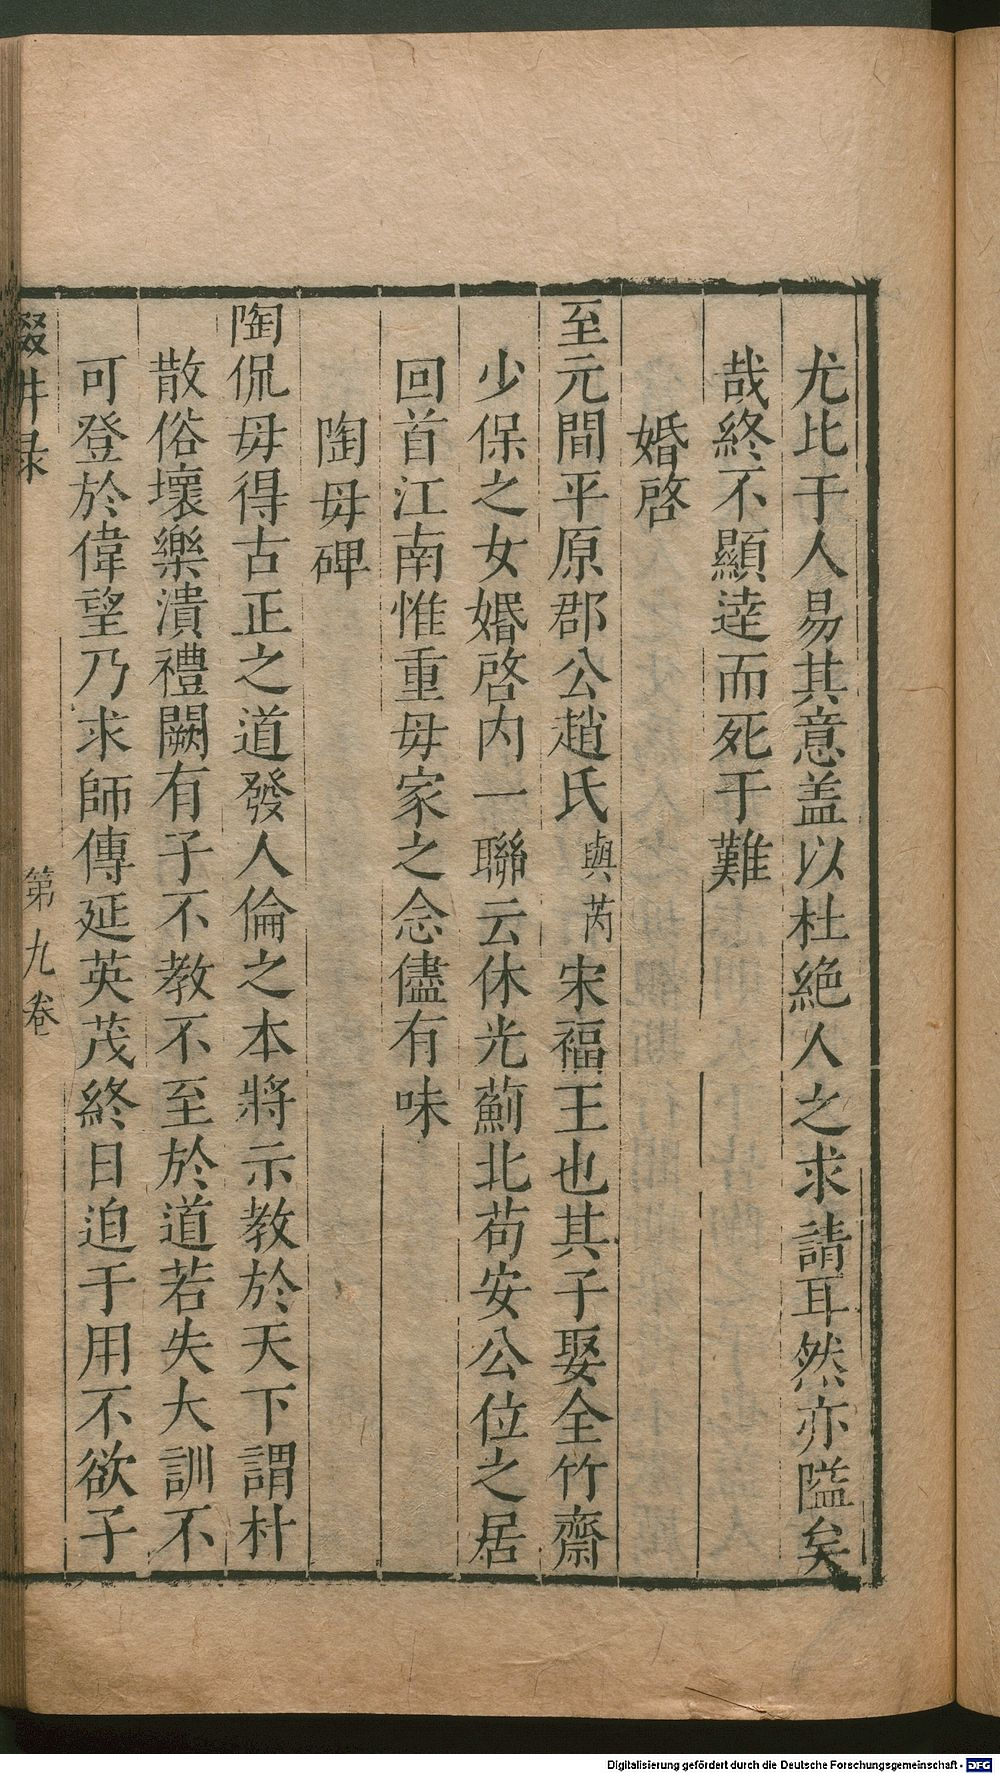 尤比于人易其意盖以杜絶人之求請耳然亦隘矣
哉終不顯逹而死于難
婚啓
至元間平原郡公趙氏與芮宋福王也其子娶全竹齋
少保之女婚啓内一聯云休光薊北苟安公位之居
回首江南惟重毋家之念儘有味
陶毋碑
陶侃毋得古正之道發人倫之本將示教於天下謂朴
散俗壞樂潰禮闕有子不教不至於道若失大訓不
可登於偉望乃求師傳延英茂終日迨于用不欲子
輟畊录
第九卷
Digitalisierung gefördert durch die Deutsche Forschungsgemeinschaft - DFG